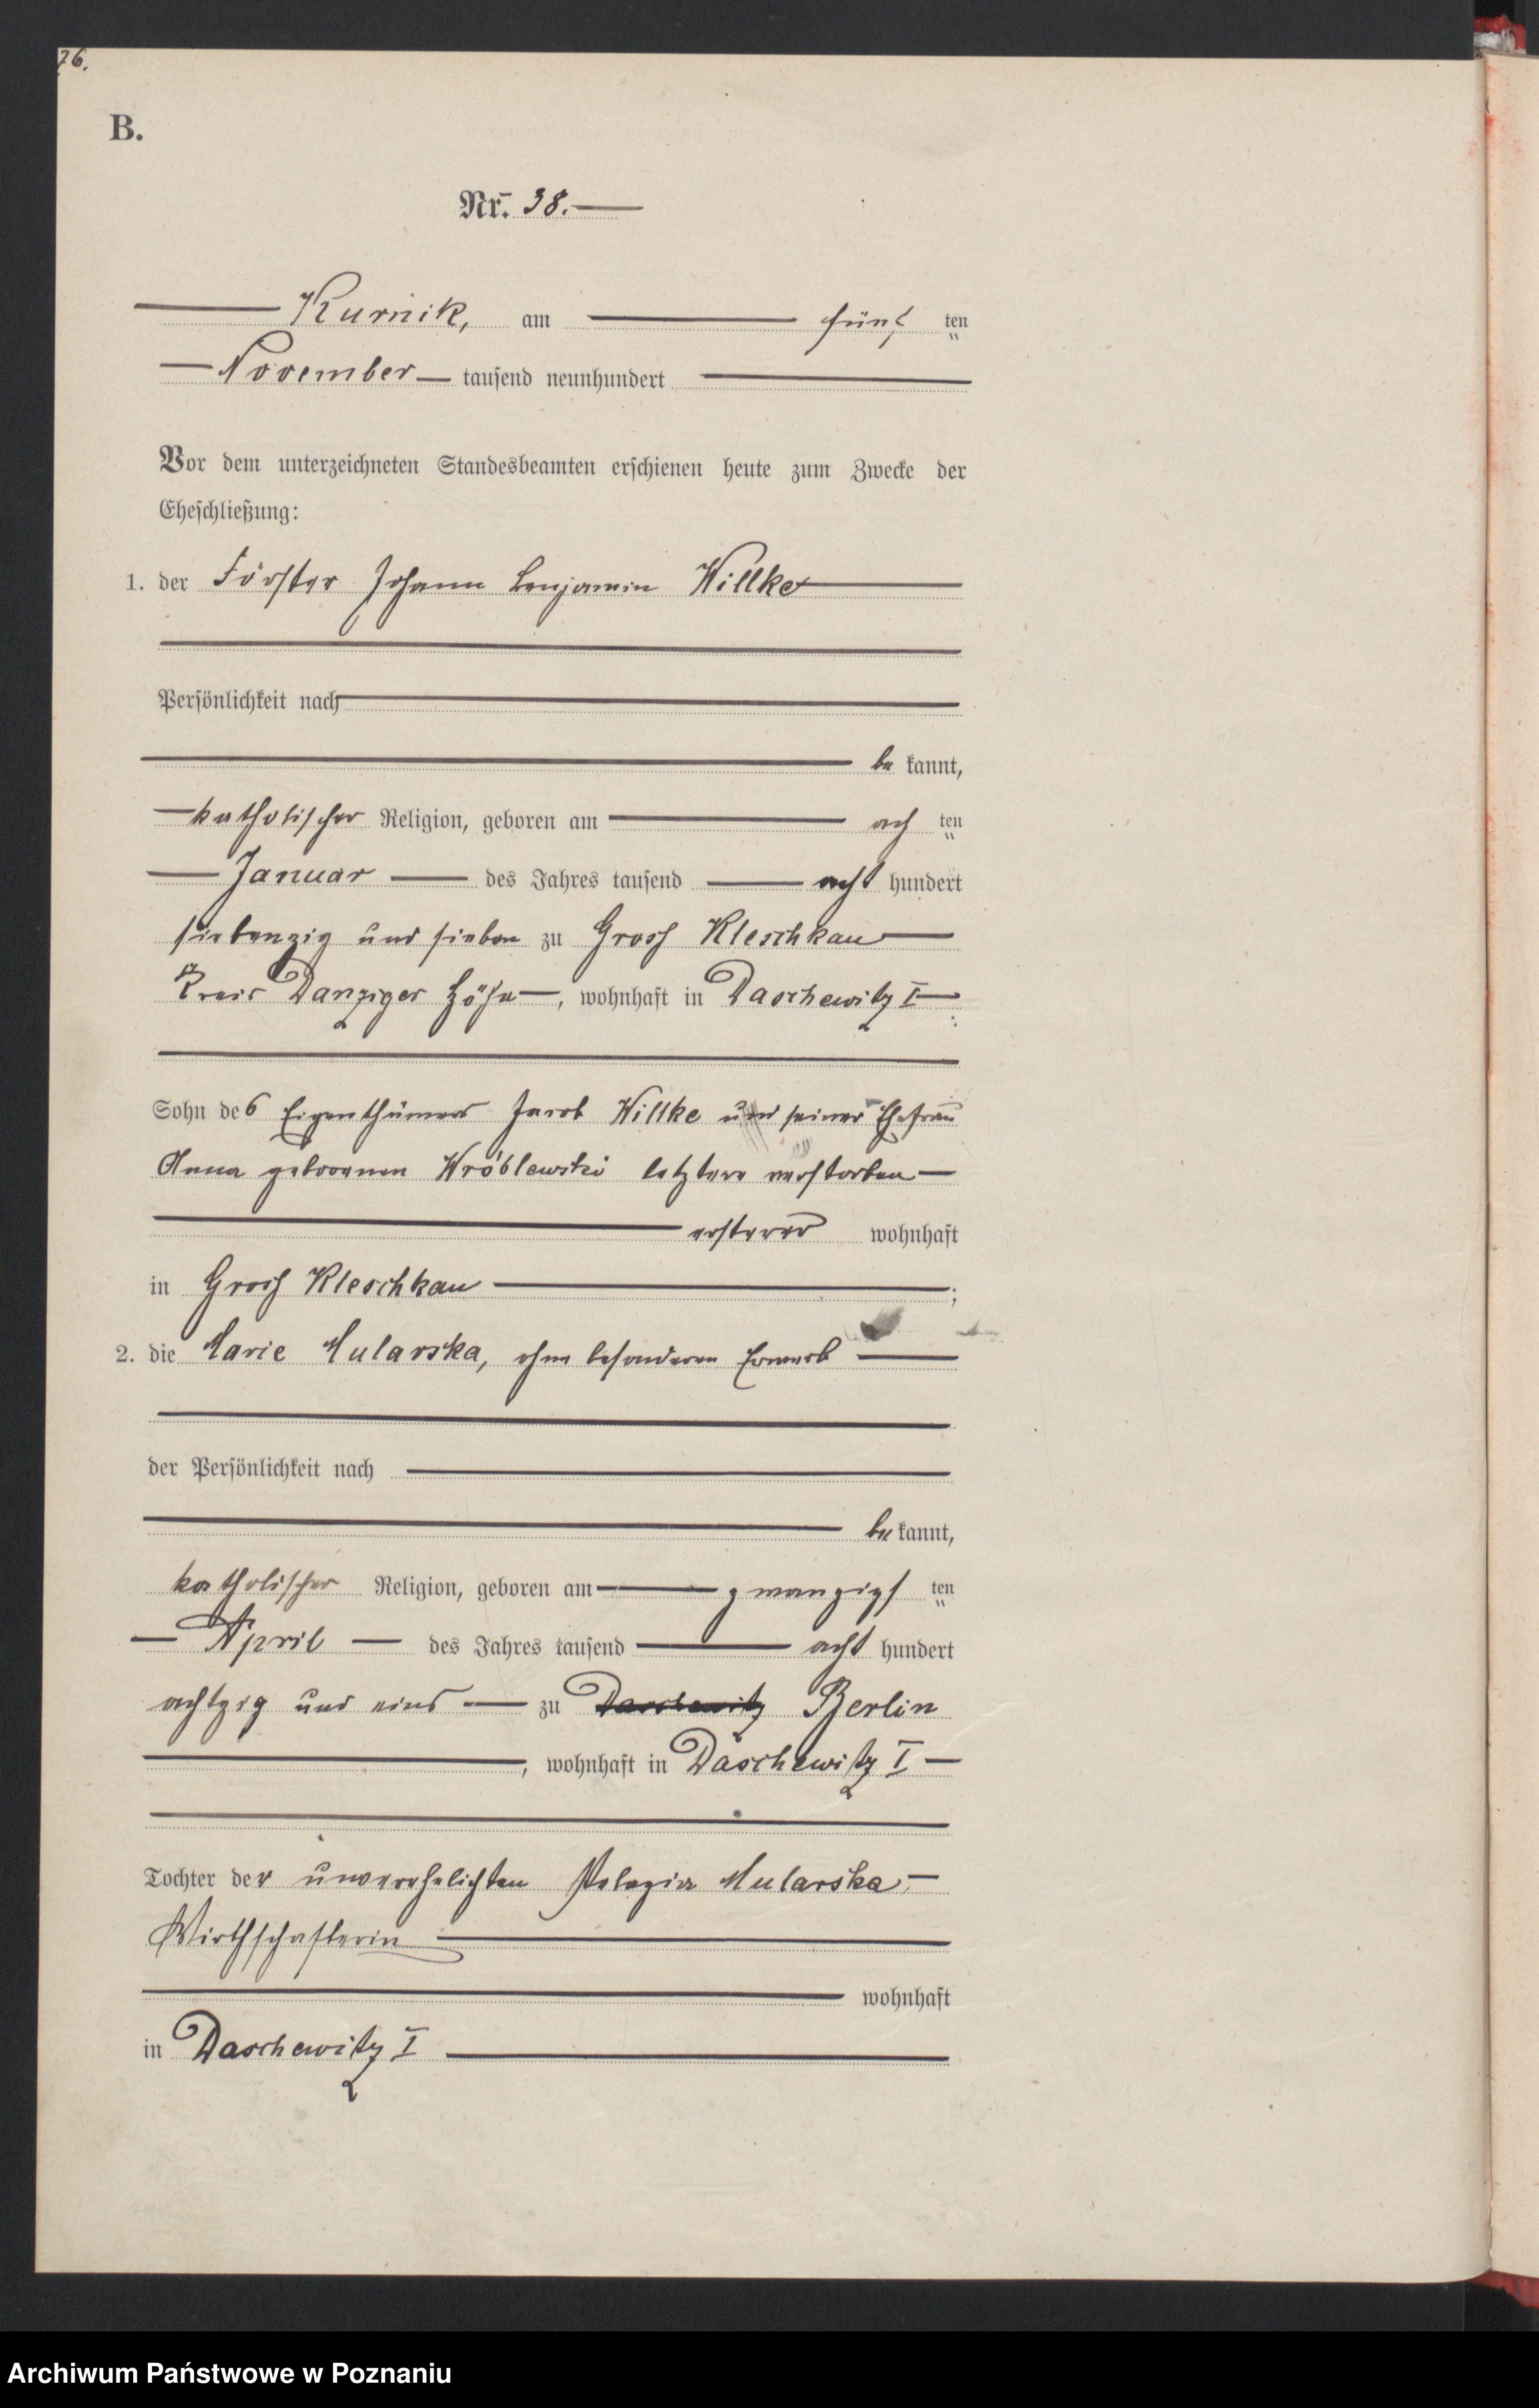 76.
B.
Nr. 38.
Kurnik, am fünf ten
November tausend neunhundert
Vor dem unterzeichneten Standesbeamten erschienen heute zum Zwecke der
Eheschließung:
1. der Förster Johann Benjamin Willke
Persönlichkeit nach
be kannt,
katholischer Religion, geboren am ach ten
Januar des Jahres tausend acht hundert
siebenzig und sieben zu Grosz Kleschkau
Kreis Danziger Höhe, wohnhaft in Daschewitz I
Sohn des Eigenthümers Jacob Willke und seiner Ehefrau
Anna geborenen Wróblewski letztere verstorben
ersterer wohnhaft
in Grosz Kleschkau ;
2. die Marie Mularska, ohne besonderen Erwerb
der Persönlichkeit nach
be kannt,
katholischer Religion, geboren am zwanzigs ten
April des Jahres tausend acht hundert
achtzig und eins zu Daschewitz Berlin
, wohnhaft in Daschewitz I
Tochter der unverehelichten Pelagia Mularska,
Wirthschafterin
wohnhaft
in Daschewitz I
Archiwum Państwowe w Poznaniu